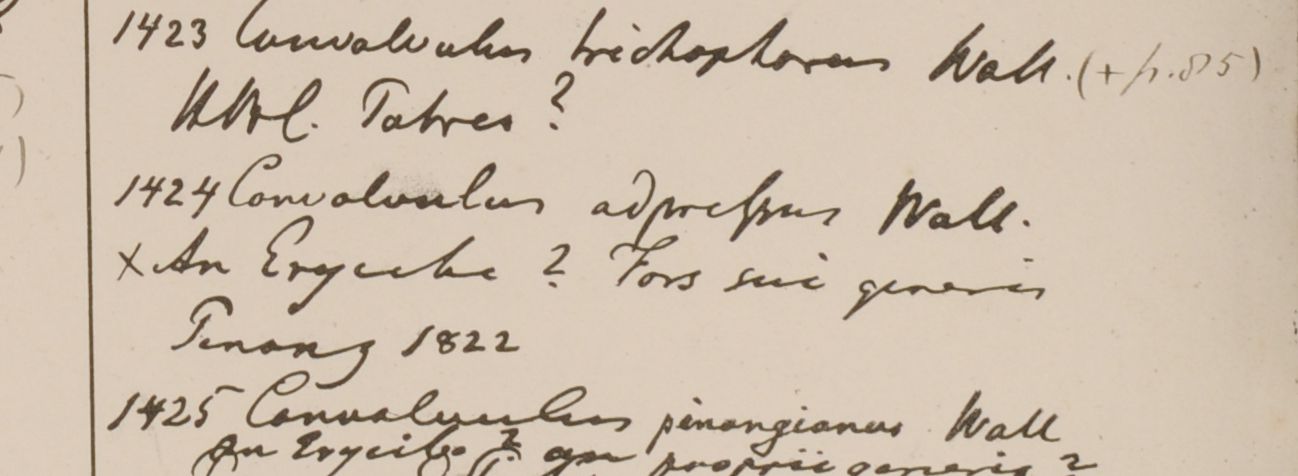 1423 Convolvulus trichophorus Wall. (+ p. 85)
HWC. Tabres ?
1424 Convolvulus adpressus Wall.
X An Erycibe ? Fors sui generis
Penang 1822
1425 Convolvulus pinangianus Wall
An Erycibe ? an proprii generis ?